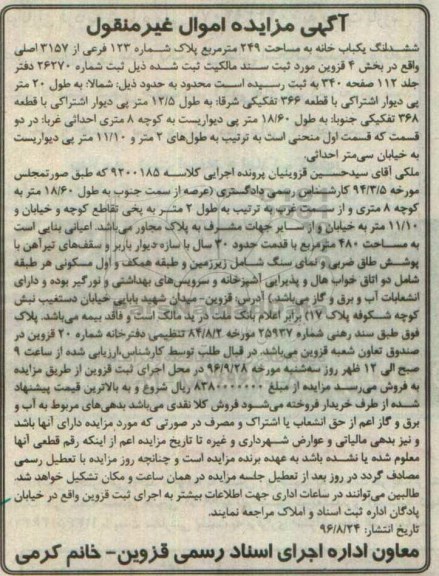 آگهی مزایده اموال غیرمنقول
ششدانگ یکباب خانه به مساحت ۲۴۹ مترمربع پلاک شماره ۱۲۳ فرعی از ۳۱۵۷ اصلی
واقع در بخش ۴ قزوین مورد ثبت سند مالکیت ثبت شده ذیل ثبت شماره ۲۶۲۷۰ دفتر
جلد ۱۱۲ صفحه ۳۴۰ به ثبت رسیده است محدود به حدود ذیل: شمالا: به طول ۲۰ متر
پی دیوار اشتراکی با قطعه ۳۶۶ تفکیکی شرقا: به طول ۱۲/۵ متر پی دیوار اشتراکی با قطعه
۳۶۸ تفکیکی جنوبا: به طول ۱۸/۶۰ متر پی دیواریست به کوچه ۸ متری احداثی غربا: در دو
قسمت که قسمت اول منحنی است به ترتیب به طول‌های ۲ متر و ۱۱/۱۰ متر پی دیواریست
به خیابان سی‌متر احداثی.
ملکی آقای سیدحسین قزوینیان پرونده اجرایی کلاسه ۹۲۰۰۱۸۵ که طبق صورتمجلس
مورخه ۹۴/۳/۵ کارشناس رسمی دادگستری (عرصه از سمت جنوب به طول ۱۸/۶۰ متر به
کوچه ۸ متری و از سمت غرب به ترتیب به طول ۲ متر به پخی تقاطع کوچه و خیابان و
۱۱/۱۰ متر به خیابان و از سایر جهات مشرف به پلاک مجاور می‌باشد. اعیانی بنایی است
به مساحت ۴۸۰ مترمربع با قدمت حدود ۳۰ سال با سازه دیوار باربر و سقف‌های تیرآهن با
پوشش طاق ضربی و نمای سنگ شامل زیرزمین و طبقه همکف و اول مسکونی هر طبقه
شامل دو اتاق خواب هال و پذیرایی آشپزخانه و سرویس‌های بهداشتی و نورگیر بوده و دارای
انشعابات آب و برق و گاز می‌باشد.) آدرس: قزوین- میدان شهید بابایی خیابان دستغیب نبش
کوچه شکوفه پلاک ۱۷) برابر اعلام بانک ملک در ید مالک است و فاقد بیمه می‌باشد. پلاک
فوق طبق سند رهنی شماره ۲۵۹۳۷ مورخه ۸۴/۸/۲ تنظیمی دفترخانه شماره ۲۰ قزوین در
صندوق تعاون شعبه قزوین می‌باشد. در قبال طلب توسط کارشناس،ارزیابی شده از ساعت ۹
صبح الی ۱۲ ظهر روز سه‌شنبه مورخه ۹۶/۹/۲۸ در محل اجرای ثبت قزوین از طریق مزایده
به فروش می‌رسد. مزایده از مبلغ ۸۳۸۰۰۰۰۰۰۰ ریال شروع و به بالاترین قیمت پیشنهاد
شده از طرف خریدار فروخته می‌شود فروش کلا نقدی می‌باشد بدهی‌های مربوط به آب و
برق و گاز اعم از حق انشعاب یا اشتراک و مصرف در صورتی که مورد مزایده دارای آنها باشد
و نیز بدهی مالیاتی و عوارض شهرداری و غیره تا تاریخ مزایده اعم از اینکه رقم قطعی آنها
معلوم شده یا نشده باشد به عهده برنده مزایده است و چنانچه روز مزایده با تعطیل رسمی
مصادف گردد در روز بعد از تعطیل جلسه مزایده در همان ساعت و مکان تشکیل خواهد شد.
طالبین می‌توانند در ساعات اداری جهت اطلاعات بیشتر به اجرای ثبت قزوین واقع در خیابان
پادگان اداره ثبت اسناد و املاک مراجعه نمایند.
تاریخ انتشار: ۹۶/۸/۲۴
معاون اداره اجرای اسناد رسمی قزوین- خانم کرمی